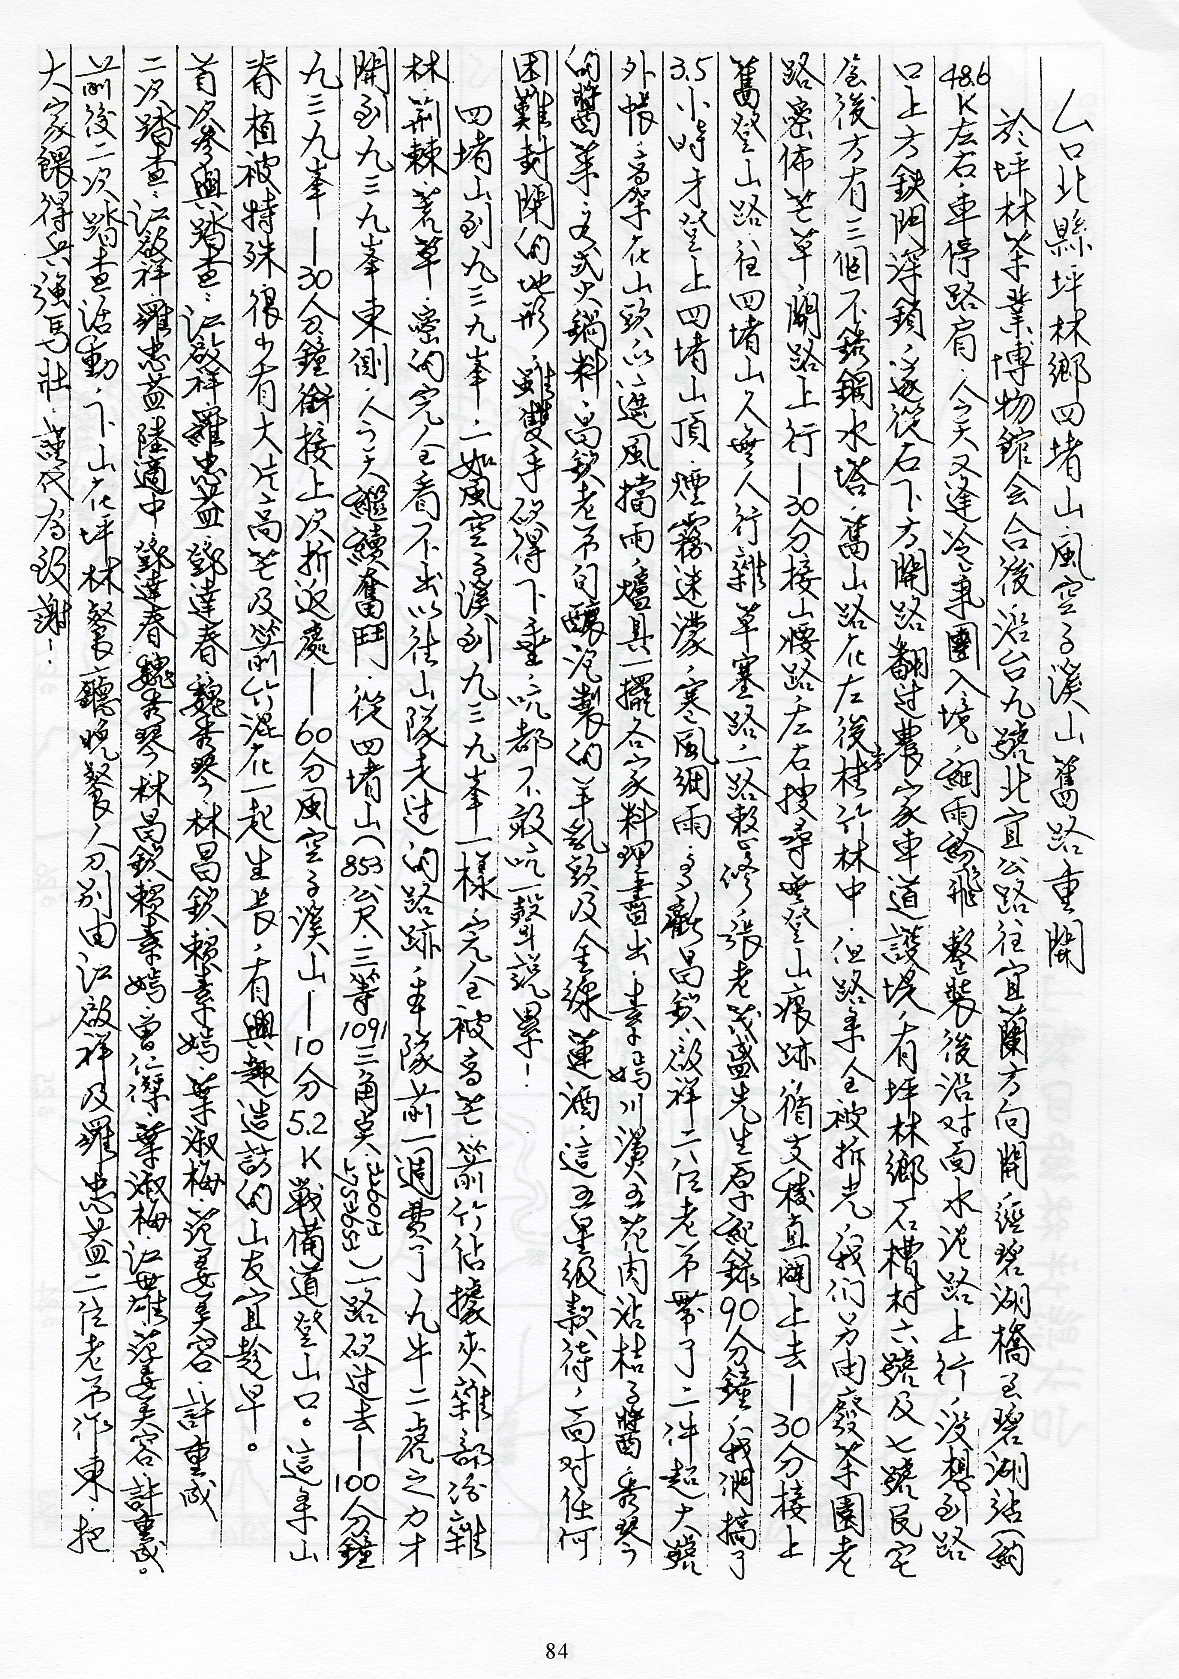 台北縣坪林鄉四堵山風空子溪山舊路重開
於坪林茶業博物館会合後沿台九號北宜公路往宜蘭方向開經碧湖橋至碧湖站(約
48.6K左右,車停路肩,人又逢冷氣團入境,細雨紛飛整裝後沿对面水泥路上行,没想到路
口上方鉄門深鎖,逐從右下方開路翻过農家車道護堤,有坪林鄉石槽村六號及七號民宅
後方有三個不銹鋼水塔,舊山路在左後桂竹林中,但路条全被拆光,我们另由廢茶園老
路密佈芒草開路上行—30分接山腰路左右搜尋無登山痕跡,循支稜直闢上去—30分接上
舊登山路往四堵山久無人行雜草塞路,一路整修,張老茂盛先生原紀錄90分鐘,我們搞了
3.5小時才登上四堵山頂,煙霧迷濛,寒風細雨,多虧昌欽、啟祥二位老弟帶了二件超大號
外帳,高架在山頭以遮風擋雨,爐具一擺各家料理盡出,素嫣川燙五花肉沾桔子醬,秀琴
的醬菜,日式火鍋料,昌欽老弟自釀泡製的羊乳頭及金線蓮酒,這五星級款待,面对任何
困難封閉的地形,雖雙手砍得下垂,吭都不敢吭一聲説累!
四堵山到九三九峯,一如風空子溪到九三九峯一樣,完全被高芒、箭竹佔據夾雜部份雜
林、荊棘、荖草,密的完全看不出以往山隊走过的路跡,本隊前一週費了九牛二虎之力才
開到九三九峯東側,今天繼續奮鬥,從四堵山(853公尺,三等1091三角点)一路砍过去—100分鐘
九三九峯—30分鐘銜接上次折返處—60分風空子溪山—10分5.2K戰備道登山口。這条山
脊植被特殊很少有大片高芒及箭竹混在一起生長,有興趣造訪的山友宜趁早。
首次參與踏查:江啟祥、羅忠益、鄧達春、魏秀琴、林昌欽、賴素嫣、葉淑梅、范姜美容、許重成
二次踏查:江啟祥、羅忠益、陸適中、鄧達春、魏秀琴、林昌欽、賴素嫣、曾仁傑、葉淑梅、江世雄、范姜美容、許重成。
前後二次踏查活動,下山在坪林餐廳晚餐分別由江啟祥及羅忠益二位老弟作東,把
大家餵得兵強馬壯,謹代為致謝!
84